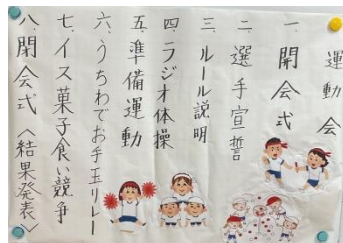 運動会
一、開会式
二、選手宣誓
三、ルール説明
四、ラジオ体操
五、準備運動
六、うちわでお手玉リレー
七、イス菓子食い競争
八、閉会式〈結果発表〉